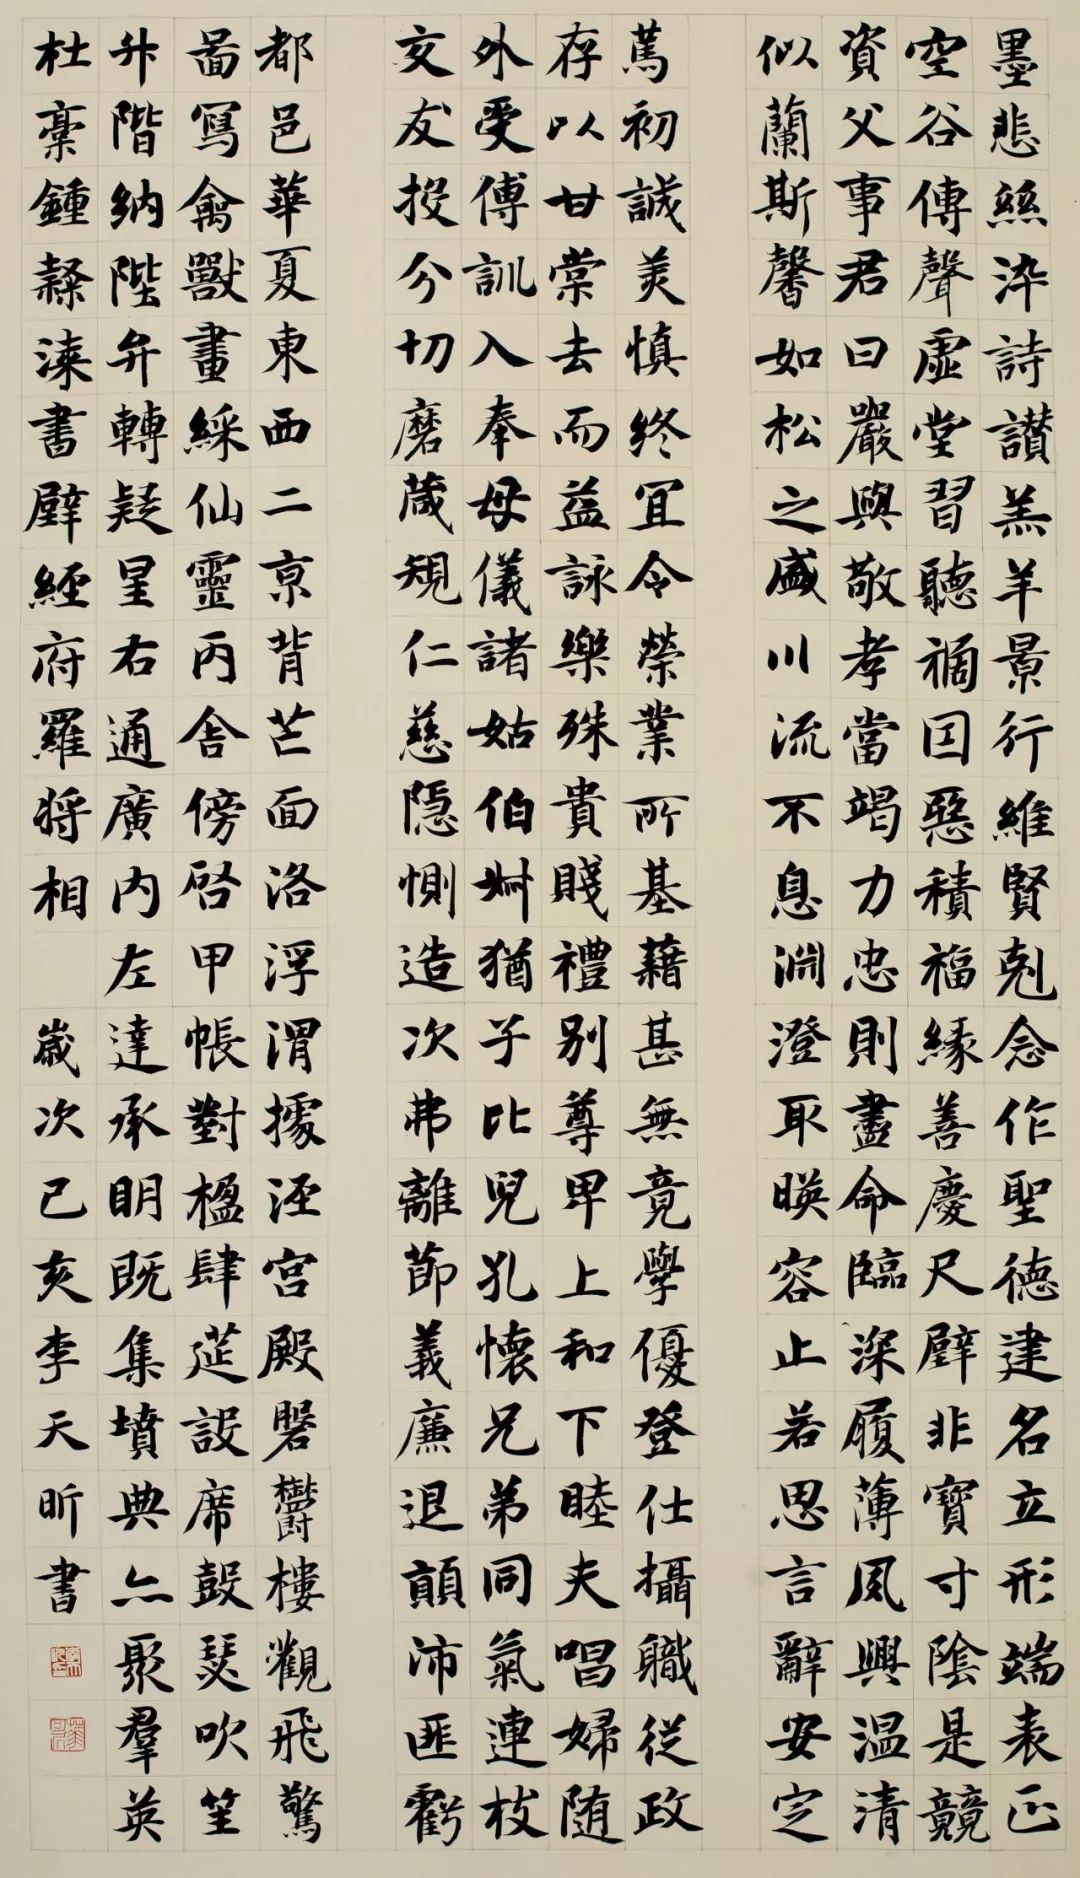 墨悲絲淬詩讃羔羊景行維賢剋念作聖德建名立形端表正
空谷傳聲虛堂習聽禍因惡積福緣善慶尺璧非寶寸陰是競
資父事君曰嚴與敬孝當竭力忠則盡命臨深履薄夙興温清
似蘭斯馨如松之盛川流不息淵澄取暎容止若思言辭安定
篤初誠美慎終宜令榮業所基藉甚無竟學優登仕攝職從政
存以甘棠去而益詠樂殊貴賤禮別尊卑上和下睦夫唱婦随
外受傅訓入奉母儀諸姑伯叔猶子比兒孔懷兄弟同氣連枝
交友投分切磨葴規仁慈隱惻造次弗離節義廉退顛沛匪虧
都邑華夏東西二京背芒面洛浮渭據涇宮殿磐鬱樓觀飛驚
啚寫禽獸畫綵仙靈丙舍傍啓甲帳對楹肆莚設席鼓瑟吹笙
升階納陛弁轉疑星右通廣内左達承明既集墳典亦聚羣英
杜稾鍾隸漆書壁經府羅將相 歲次己亥李天昕書